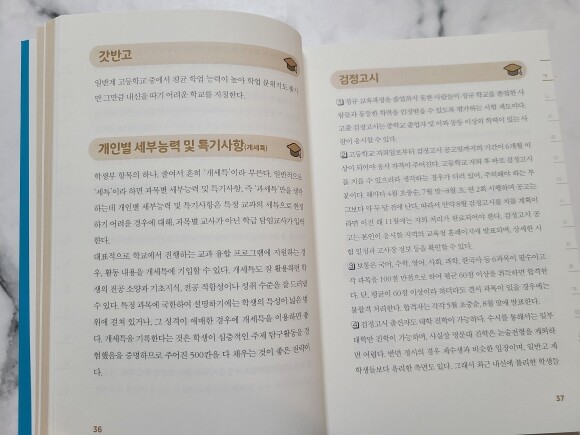 갓반고
일반계 고등학교 중에서 평균 학업 능력이 높아 학업 분위기도 좋지
만 그만큼 내신을 따기 어려운 학교를 지칭한다.
개인별 세부능력 및 특기사항(개세특)
학생부 항목의 하나. 줄여서 흔히 '개세특'이라 부른다. 일반적으로
'세특'이라 하면 과목별 세부능력 및 특기사항, 즉 '과세특'만을 생각
하는데 개인별 세부능력 및 특기사항은 특정 교과의 세특으로 한정
하기 어려운 경우에 대해, 과목별 교사가 아닌 학급 담임교사가 입력
한다.
대표적으로 학교에서 진행하는 교과 융합 프로그램에 지원하는 경
우, 활동 내용을 개세특에 기입할 수 있다. 개세특도 잘 활용하면 학
생의 전공 소양과 기초지식, 전공 적합성이나 성취 수준을 잘 드러낼
수 있다. 특정 과목에 국한하여 설명하기에는 학생의 특성이 넓은 범
위에 걸쳐 있거나, 그 성격이 애매한 경우에 개세특을 이용하면 좋
다. 개세특을 기록한다는 것은 학생이 심층적인 주제 탐구활동을 경
험했음을 증명하므로 주어진 500자를 다 채우는 것이 좋은 전략이
다.
36
검정고시
정규 교육과정을 졸업하지 못한 사람들이 정규 학교를 졸업한 사
람들과 동등한 학력을 인정받을 수 있도록 평가하는 시험 제도이다.
고졸 검정고시는 중학교 졸업자 및 이와 동등 이상의 학력이 있는 사
람이 응시할 수 있다.
고등학교 자퇴일로부터 검정고시 공고일까지의 기간이 6개월 이
상이 되어야 응시 자격이 주어진다. 고등학교 자퇴 후 바로 검정고시
를 치를 수 있으리라 생각하는 경우가 더러 있어, 주의해야 하는 부
분이다. 해마다 4월 초중순, 7월 말~8월 초, 연 2회 시행하며 공고는
그보다 약 두 달 전에 난다. 따라서 만약 8월 검정고시를 치를 계획이
라면 이전 해 11월에는 자퇴 처리가 완료되어야 한다. 검정고시 공
고는 본인이 응시할 지역의 교육청 홈페이지에 발표되며, 상세한 시
험 일정과 고사장 정보 등을 확인할 수 있다.
보통은 국어, 수학, 영어, 사회, 과학, 한국사 등 6과목이 필수이고
각 과목을 100점 만점으로 하여 평균 60점 이상을 취득하면 합격한
다. 단, 평균이 60점 이상이라 하더라도 결시 과목이 있을 경우에는
불합격 처리한다. 합격자는 각각 5월 초중순, 8월 말에 발표한다.
검정고시 출신자도 대학 진학이 가능하다. 수시를 통해서는 일부
대학만 진학이 가능하며, 사실상 명문대 진학은 논술전형을 제외하
면 어렵다. 반면 정시의 경우 재수생과 비슷한 입장이며, 일반고 재
학생들보다 유리한 측면도 있다. 그래서 최근 내신에 불리한 학생들
37